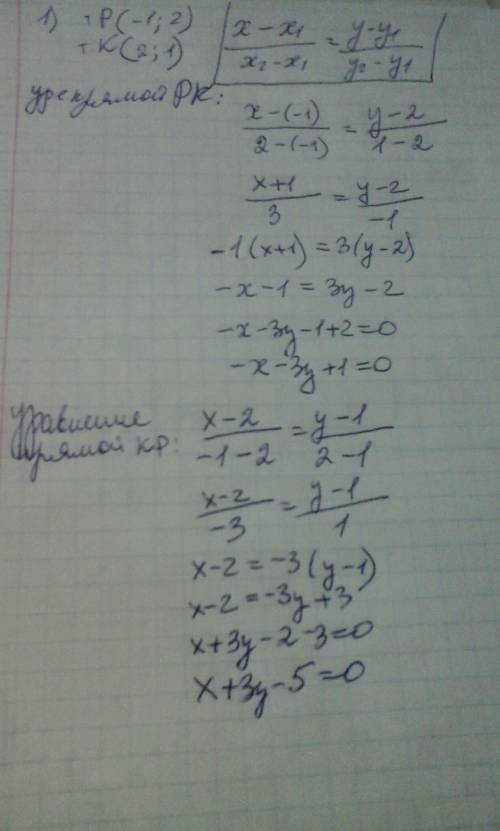 1) т P(-1; 2)
т K(2; 1)
(x - x₁)/(x₂ - x₁) = (y - y₁)/(y₂ - y₁)
ур-е прямой PK:
(x - (-1))/(2 - (-1)) = (y - 2)/(1 - 2)
(x + 1)/3 = (y - 2)/(-1)
-1(x+1) = 3(y-2)
-x - 1 = 3y - 2
-x - 3y - 1 + 2 = 0
-x - 3y + 1 = 0
Уравнение
прямой KP:
(x - 2)/(-1 - 2) = (y - 1)/(2 - 1)
(x - 2)/(-3) = (y - 1)/1
x - 2 = -3(y - 1)
x - 2 = -3y + 3
x + 3y - 2 - 3 = 0
x + 3y - 5 = 0